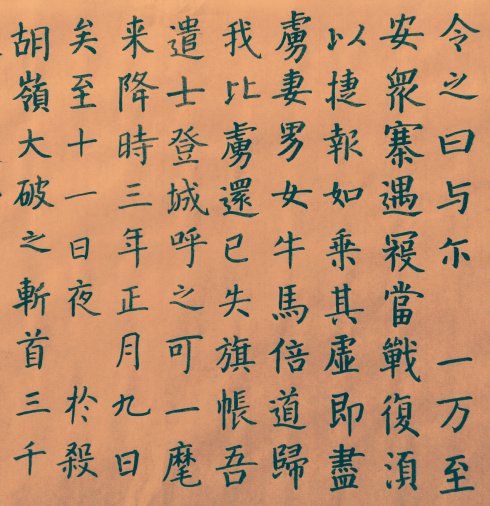 令之曰与尔 一万至
安衆寨遇寇當戰復湏
以捷報如乘其虛即盡
虜妻男女牛馬倍道歸
我比虜還已失旗帳吾
遣士登城呼之可一麾
来降時三年正月九日
矣至十一日夜 於殺
胡嶺大破之斬首三千